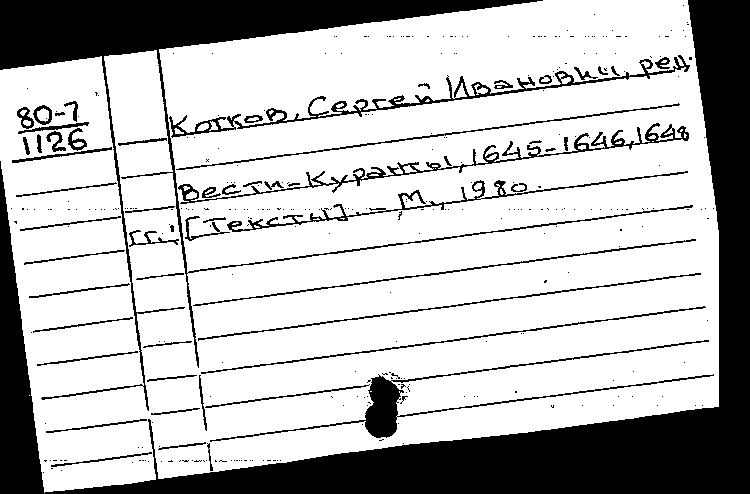 80-7
1126
Котков, Сергей Иванович, ред.
Вести-Куранты, 1645-1646, 1648
гг.: [Тексты]. - М., 1980.